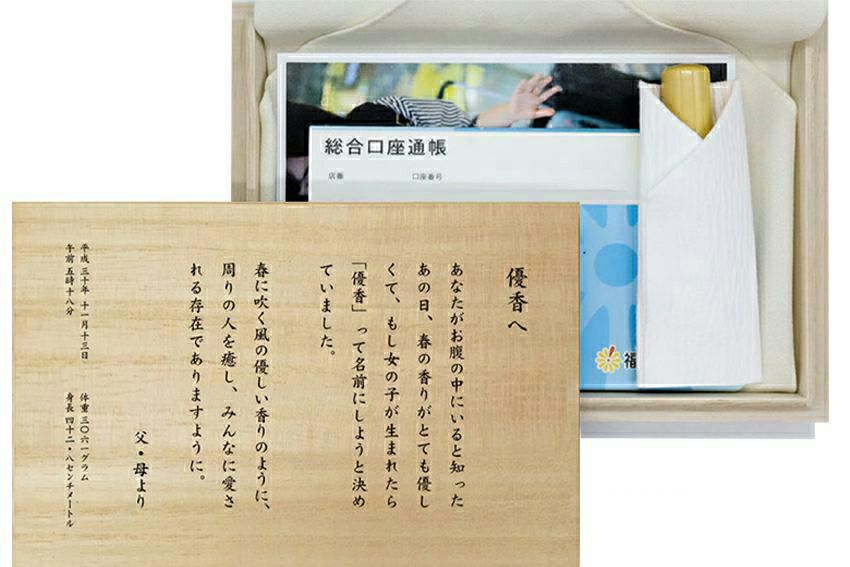 総合口座通帳
店番 口座番号
福
優香へ
あなたがお腹の中にいると知った
あの日、春の香りがとても優し
くて、もし女の子が生まれたら
「優香」って名前にしようと決め
ていました。
春に吹く風の優しい香りのように、
周りの人を癒し、みんなに愛さ
れる存在でありますように。
父・母より
平成三十年 十一月十三日
午前五時十八分
体重 三〇六一グラム
身長 四十二・八センチメートル